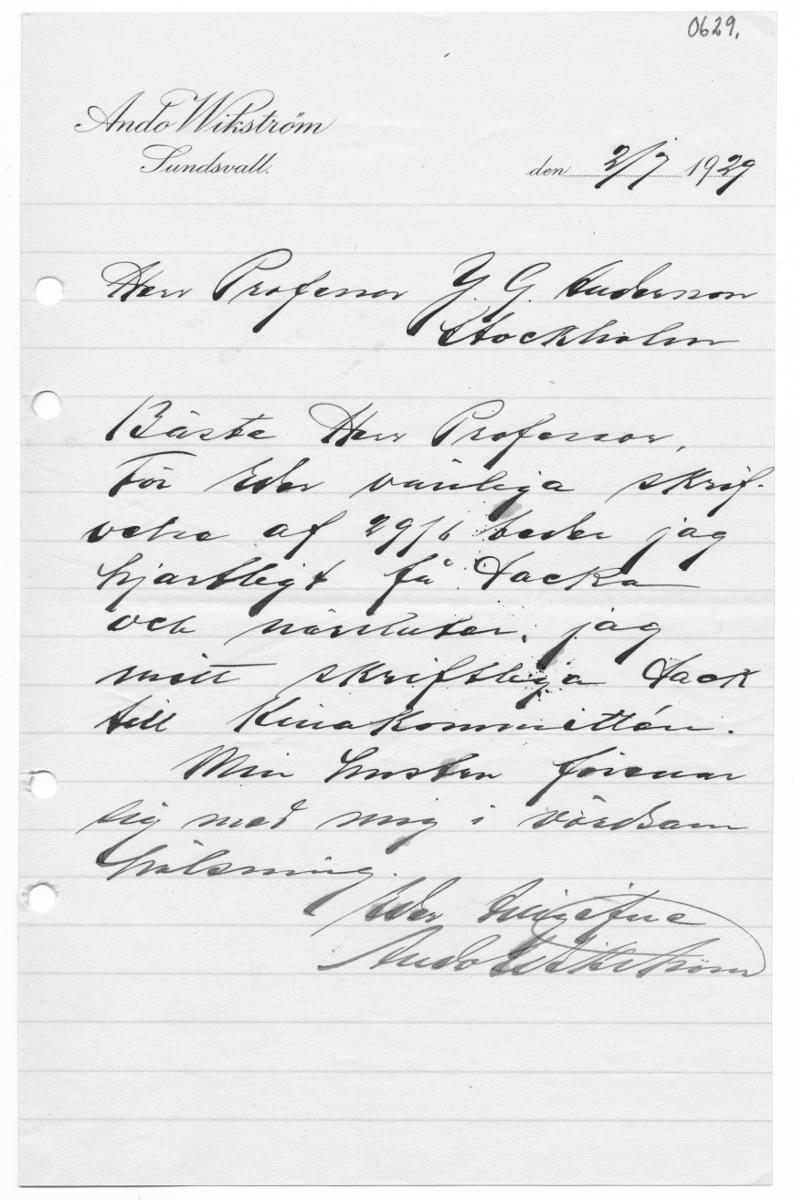 0629.
Ando Wikström
Sundsvall.
den 2/7 1929
Herr Professor J. G. Anderson
Stockholm
Bäste Herr Professor,
För Eder vänliga skrif-
velse af 29/6 beder jag
hjartligt få tacka
och närsluter jag
mitt skriftliga tack
till Kinakommittén.
Min hustru förenar
sig med mig i vördsam
hälsning.
Eder tillgifne
Ando Wikström